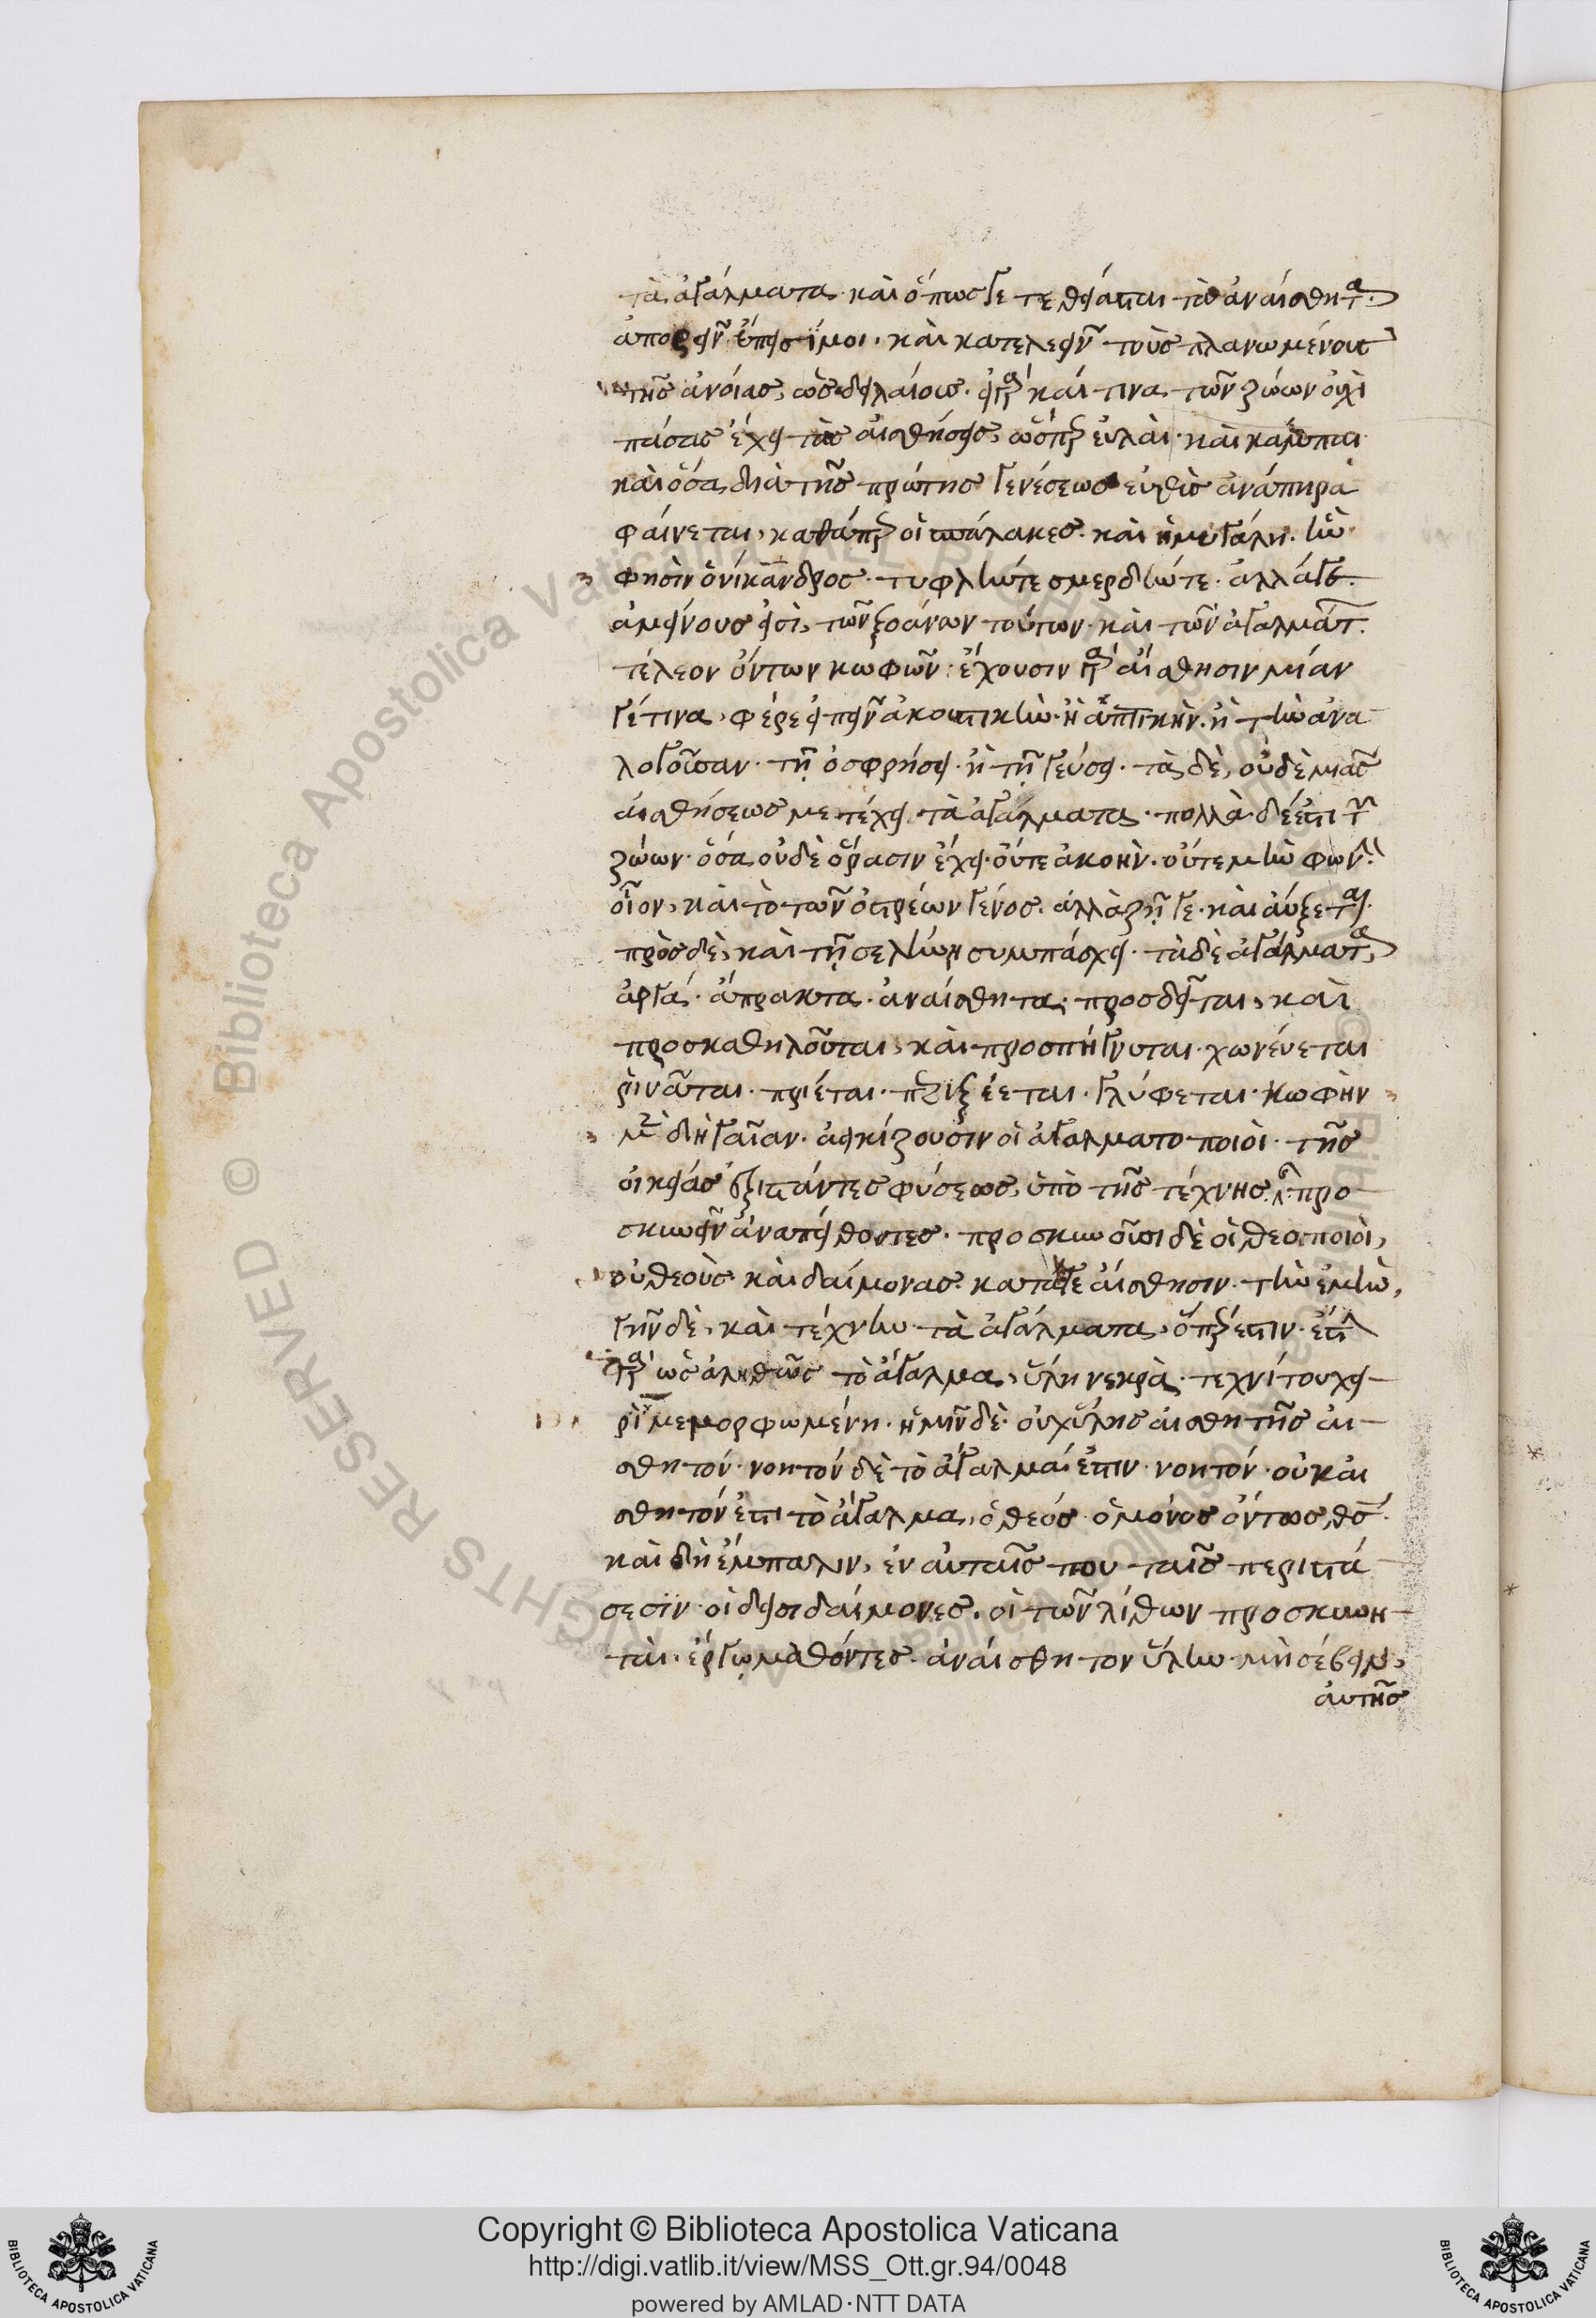 τὰ ἀγάλματα. καὶ ὅπως γε τεθείασται τὰ ἀναίσθητα.
ἀπορεῖν ἔπεισί μοι. καὶ κατελεεῖν τοὺς πλανωμένους
τῆς ἀνοίας, ὡς δειλαίους. εἰ γὰρ καί τινα τῶν ζώων οὐχὶ
πάσας ἔχει τὰς αἰσθήσεις, ὥσπερ εὐλαὶ. καὶ κάμπαι
καὶ ὅσα διὰ τῆς πρώτης γενέσεως εὐθὺς ἀνάπηρα
φαίνεται, καθάπερ οἱ σπάλακες. καὶ ἡ μυγάλη. ἣν
φησὶν ὁ νίκανδρος. τυφλήν τε σμερδνήν τε. ἀλλά γε.
ἀμείνους εἰσὶ, τῶν ξοάνων τούτων. καὶ τῶν ἀγαλμάτων.
τέλεον ὄντων κωφῶν. ἔχουσιν γὰρ αἴσθησιν μίαν
γέ τινα, φέρε εἰπεῖν ἀκουστικήν. ἢ ἁπτικὴν. ἢ τὴν ἀνα
λογοῦσαν. τῇ ὀσφρήσει. ἢ τῇ γεύσει. τὰ δὲ, οὐδὲ μιᾶς
αἰσθήσεως μετέχει τὰ ἀγάλματα. πολλὰ δέ ἐστι τῶν
ζώων. ὅσα οὐδὲ ὅρασιν ἔχει. οὔτε ἀκοὴν. οὔτε μὴν φωνήν.
οἷον, καὶ τὸ τῶν ὀστρέων γένος. ἀλλὰ ζῇ γε. καὶ αὔξεται.
πρὸς δὲ, καὶ τῇ σελήνῃ συμπάσχει. τὰ δὲ ἀγάλματα,
ἀργά. ἄπρακτα. ἀναίσθητα. προσδεῖται, καὶ
προσκαθηλοῦται, καὶ προσπήγνυται. χωνεύεται
ῥινᾶται. πρίεται. περιξέεται. γλύφεται. κωφὴν
μὲν δὴ γαῖαν. ἀεικίζουσιν οἱ ἀγαλματοποιοὶ. τῆς
οἰκείας ἐξιστάντες φύσεως, ὑπὸ τῆς τέχνης. προ
σκυνεῖν ἀναπείθοντες. προσκυνοῦσι δὲ οἱ θεοποιοὶ,
οὐ θεοὺς καὶ δαίμονας. κατά γε αἴσθησιν. τὴν ἐμὴν,
γῆν δὲ, καὶ τέχνην. τὰ ἀγάλματα, ὅπερ ἔστιν. ἔστιν
γὰρ ὡς ἀληθῶς τὸ ἄγαλμα, ὕλη νεκρὰ. τεχνίτου χει
ρὶ μεμορφωμένη. ἡμῖν δὲ. οὐχ ὕλης αἰσθητῆς αἰ
σθητόν. νοητὸν δὲ τὸ ἄγαλμά ἐστιν. νοητόν. οὐκ αἰ
σθητόν ἐστι τὸ ἄγαλμα, ὁ θεός. ὁ μόνος ὄντως θς.
καὶ δὴ ἔμπαλιν, ἐν αὐταῖς που ταῖς περιστά
σεσιν. οἱ δεισιδαίμονες, οἱ τῶν λίθων προσκυνη
ταὶ. ἔργῳ μαθόντες. ἀναίσθητον ὕλην. μὴ σέβειν,
αὐτῆς
Copyright © Biblioteca Apostolica Vaticana
http://digi.vatlib.it/view/MSS_Ott.gr.94/0048
powered by AMLAD·NTT DATA